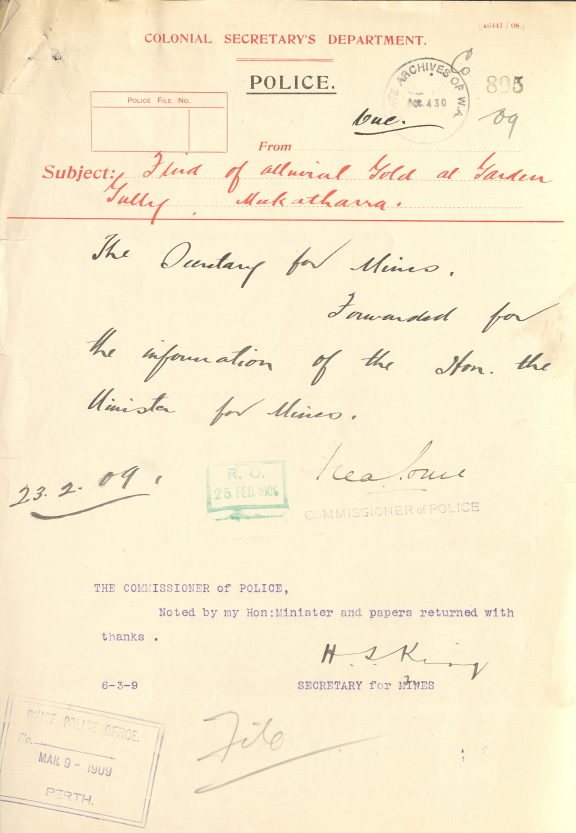 (AG141/08.)
COLONIAL SECRETARY'S DEPARTMENT.
POLICE.
ARCHIVES OF W.A.
ACC 430
895
09
POLICE FILE No.
From
Subject: Find of alluvial Gold at Garden
Gully, Mekatharra.
The Secretary for Mines.
Forwarded for
the information of the Hon. the
Minister for Mines.
23.2.09.
R.O.
25 FEB 1909
COMMISSIONER of POLICE
THE COMMISSIONER of POLICE,
Noted by my Hon:Minister and papers returned with
thanks .
H S King
6-3-9
SECRETARY for MINES
CHIEF POLICE OFFICE.
No.
MAR 9 - 1909
PERTH.
File